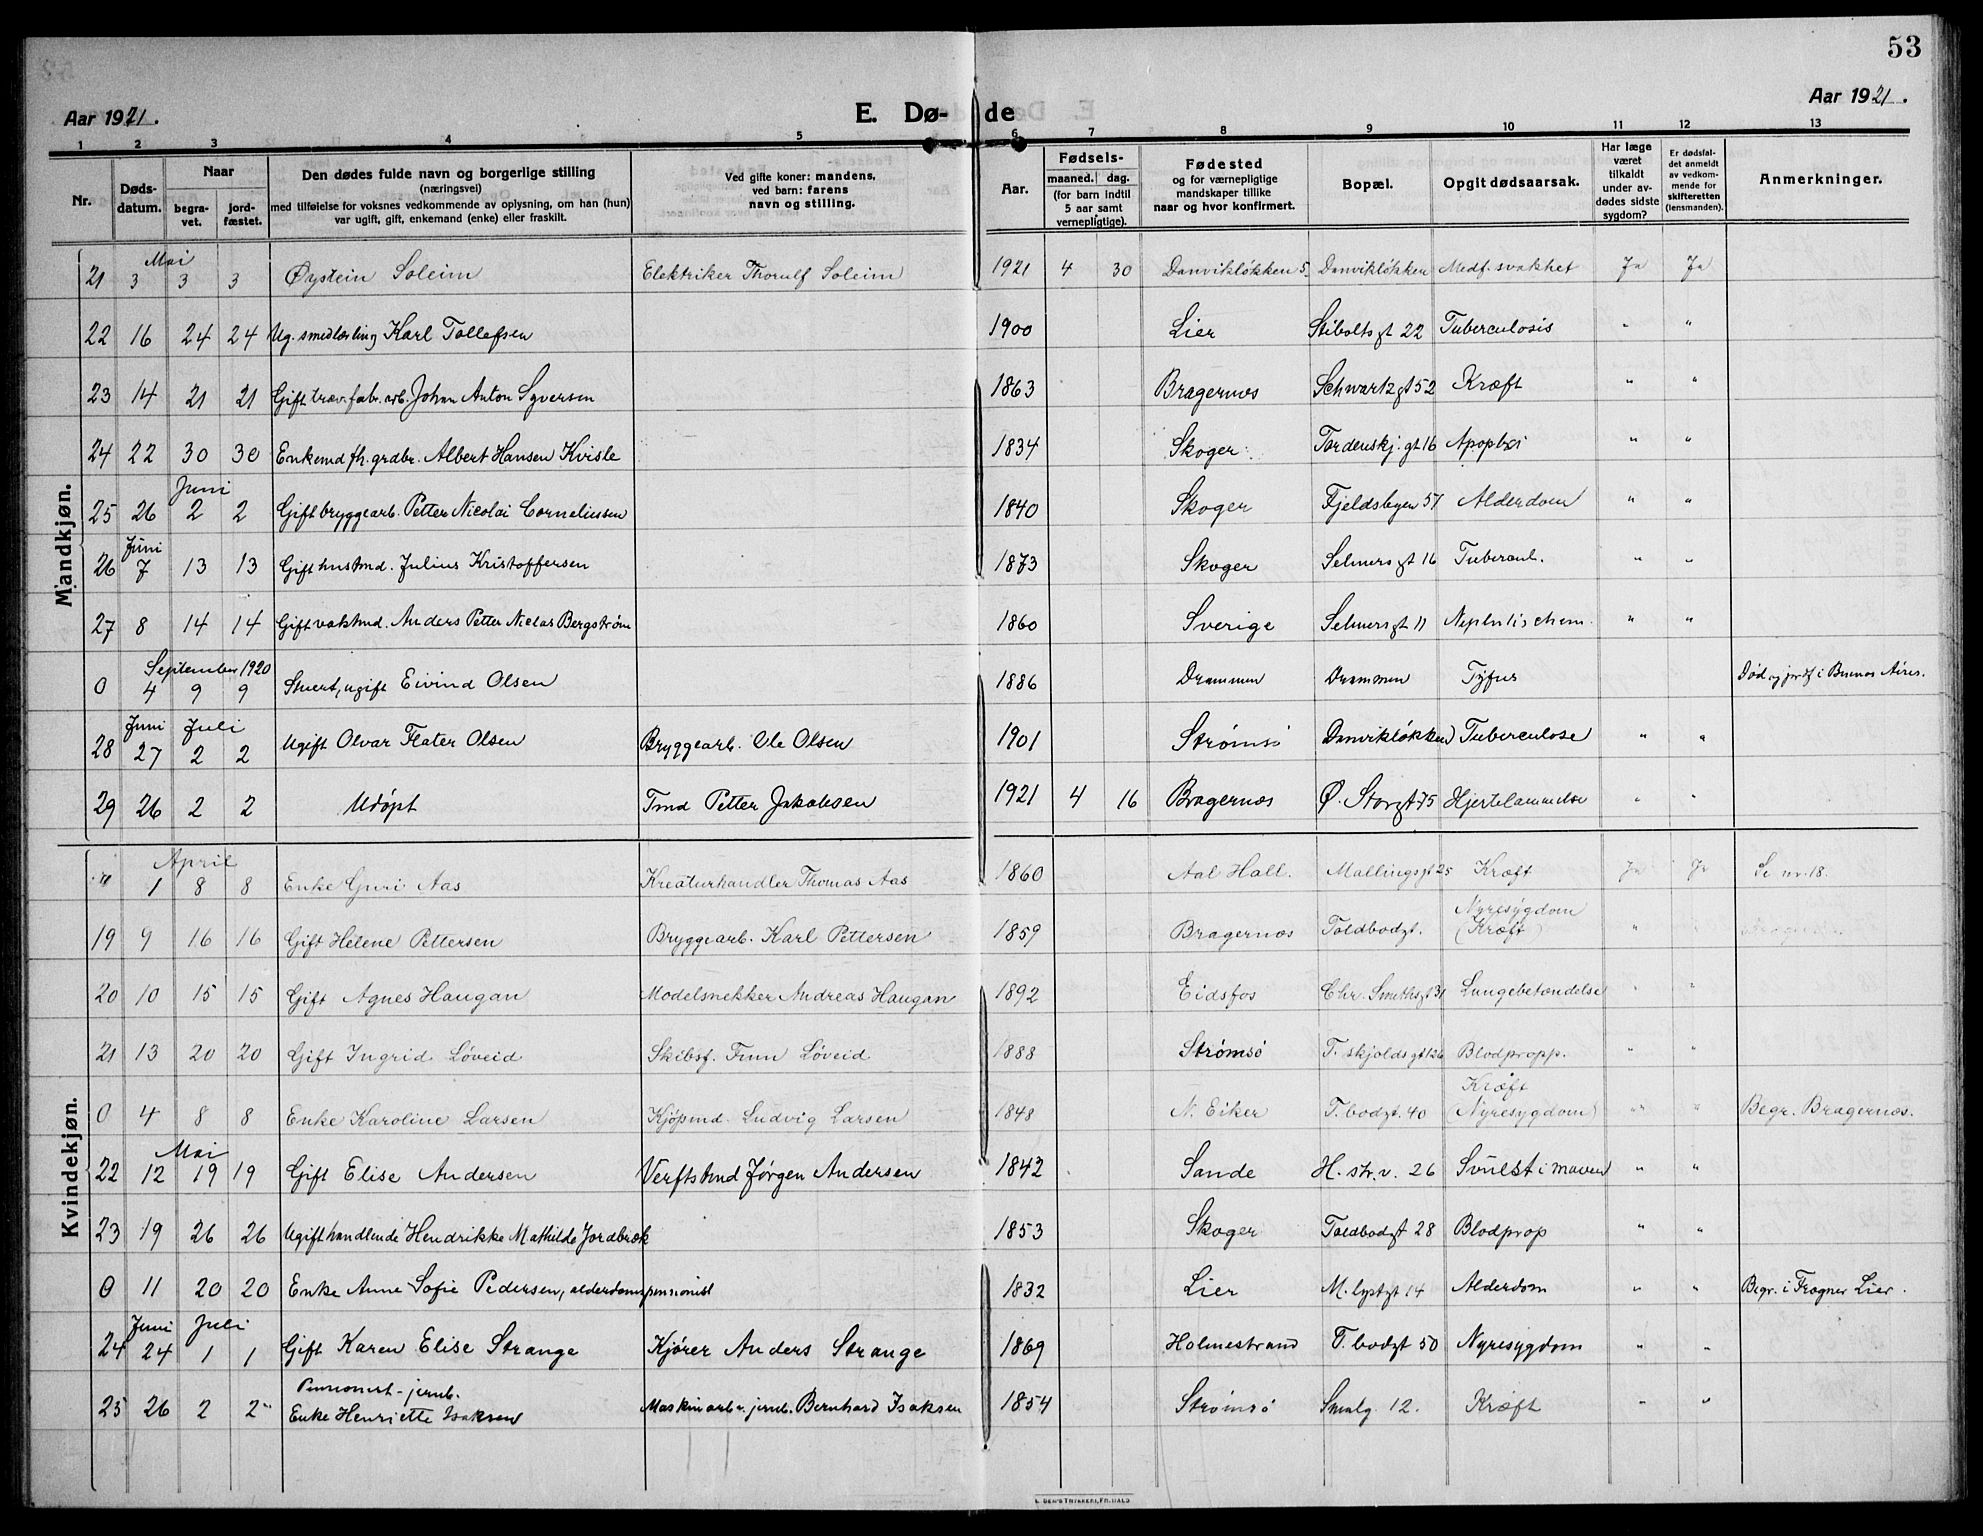 53
Aar 1921.
E. Dø- de
Aar 1921.
1 2 3 4 5 6 7 8 9 10 11 12 13
Nr.
Døds-
datum.
Naar
begra-
vet.
jord-
fæstet.
Den dødes fulde navn og borgerlige stilling
(næringsvei)
med tilføielse for voksnes vedkommende av oplysning, om han (hun)
var ugift, gift, enkemand (enke) eller fraskilt.
Ved gifte koner: mandens,
ved barn: farens
navn og stilling.
Aar.
Fødsels-
maaned. dag.
(for barn indtil
5 aar samt
vernepligtige).
Fødested
og for værnepligtige
mandskaper tillike
naar og hvor konfirmert.
Bopæl.
Opgit dødsaarsak.
Har læge
været
tilkaldt
under av-
dødes sidste
sygdom?
Er dødsfal-
det anmeldt
av vedkom-
mende for
skifteretten
(lensmanden).
Anmerkninger.
Mandkjøn.
Mai
21 3 3 3 Øystein Soleim Elektriker Thorulf Soleim 1921 4 30 Danvikløkken 5 Danvikløkken Medf. svakhet Ja Ja
22 16 24 24 Ug. smedlærling Karl Tollefsen 1900 Lier Stiboltsgt 22 Tuberculosis " "
23 14 21 21 Gift trævfabr. arb. Johan Anton Syversen 1863 Bragernæs Schwartzgt 52 Kræft " "
24 22 30 30 Enkemd fh. grdbr. Albert Hansen Kvisle 1834 Skoger Tordenskj. gt 16 Apoplexi " "
Juni
25 26 2 2 Gift bryggearb. Petter Nicolai Corneliussen 1840 Skoger Fjeldsbyen 51 Alderdom " "
Juni
26 7 13 13 Gift hustmd. Julius Kristoffersen 1873 Skoger Selmersgt 16 Tubercul. " "
27 8 14 14 Gift vaktmd. Anders Petter Niclas Bergstrøm 1860 Sverige Selmersgt 11 " "
September 1920
0 4 9 9 Stuert, ugift Eivind Olsen 1886 Drammen Drammen Tyfus Død og jordf i Buenos Aires.
Juni Juli
28 27 2 2 Ugift Olvar Flater Olsen Bryggearb. Ole Olsen 1901 Strømsø Danvikløkken Tuberculose " "
29 26 2 2 Udøpt Tmd Petter Jakobsen 1921 4 16 Bragernæs Ø. Storgt 75 Hjertelammelse " "
Kvindekjøn.
April
1 8 8 Enke Guri Aas Kreaturhandler Thomas Aas 1860 Aal Hall. Mallingsgt 25 Kræft Ja Ja Se nr. 18.
19 9 16 16 Gift Helene Pettersen Bryggearb. Karl Pettersen 1859 Bragernæs Toldbodgt. Nyresygdom (Kræft) " "
20 10 15 15 Gift Agnes Haugan Modelsnekker Andreas Haugan 1892 Eidsfos Chr. Smithsgt 31 Lungebetændelse " "
21 13 20 20 Gift Ingrid Løveid Skibsf. Finn Løveid 1888 Strømsø T. skjoldsgt 126 Blodpropp. " "
0 4 8 8 Enke Karoline Larsen Kjøpmd. Ludvig Larsen 1848 N. Eiker T. bodgt. 40 Kræft (Nyresygdom) " " Begr. Bragernæs.
Mai
22 12 19 19 Gift Elise Andersen Verftstmd Jørgen Andersen 1842 Sande H. str. v. 26 Svulst i maven " "
23 19 26 26 Ugift handlende Hendrikke Mathilde Jordbræk 1853 Skoger Toldbodgt 28 Blodprop " "
0 11 20 20 Enke Anne Sofie Pedersen, alderdomspensionist 1832 Lier M. lystgt 14 Alderdom " " Begr. i Frogner Lier.
Juni Juli
24 24 1 1 Gift Karen Elise Strange Kjører Anders Strange 1869 Holmestrand T. bodgt 50 Nyresygdom " "
Pensionist - jernb.
25 26 2 2 Enke Henriette Isaksen Maskinarb v. jernb. Bernhard Isaksen 1854 Strømsø Smalg. 12. Kræft " "